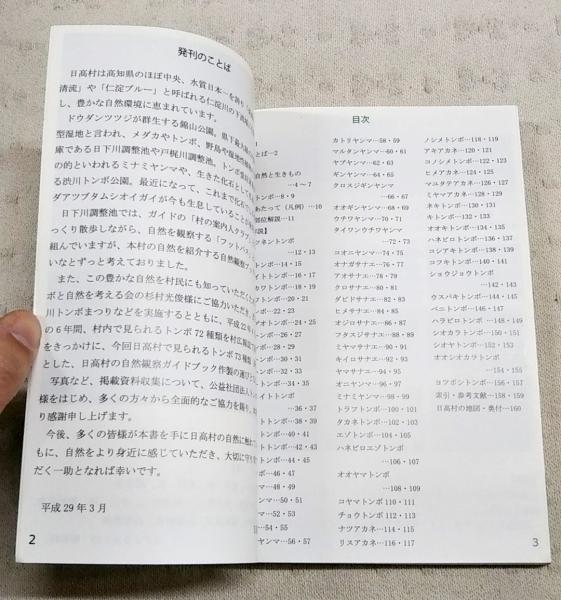 発刊のことば
日高村は高知県のほぼ中央、水質日本一を誇り
清流」や「仁淀ブルー」と呼ばれる仁淀川の下流
し、豊かな自然環境に恵まれています。
ドウダンツツジが群生する錦山公園。県下最大
型湿地と言われ、メダカやトンボ、野鳥や湿地性
庫である日下川調整池や戸梶川調整池。トンボ愛好
の的といわれるミナミヤンマや、生きた化石として
る渋川トンボ公園。最近になって、これまで化石で
ダアツブタムシオイガイが今も生息していることが
日下川調整池では、ガイドの「村の案内人クラブ」
っくり散歩しながら、自然を観察する「フットパス
組んでいますが、本村の自然を紹介する自然観察ブ
いなとずっと考えておりました。
また、この豊かな自然を村民にも知っていただく
ボと自然を考える会の杉村光俊様にご協力いただき、
川トンボまつりなどを実施するとともに、平成22年
の6年間、村内で見られるトンボ72種類を村広報
をきっかけに、今回日高村で見られるトンボ73種類
とした、日高村の自然観察ガイドブック作製の運び
写真など、掲載資料収集について、公益社団法人
様をはじめ、多くの方々から全面的なご協力を賜り、
り感謝申し上げます。
今後、多くの皆様が本書を手に日高村の自然に触れ
もに、自然をより身近に感じていただき、大切に守り
だく一助となれば幸いです。
平成29年3月
2
目次
とば…2
自然と生きもの
…4～7
ンボ…8・9
あたって（凡例）…10
部位解説…11
説】
ツネントンボ
…12・13
ンボ…14・15
イトトンボ…16・17
カワトンボ…18・19
トンボ…20・21
ンボ…22・23
アオイトトンボ…24・25
トトンボ…26・27
トンボ…28・29
トンボ…30・31
トンボ…32・33
イトトンボ…34・35
イトトンボ
…36・37
トトンボ…38・39
トンボ…40・41
モイトトンボ…42・43
トトンボ…44・45
トンボ…46・47
ンマ…48・49
ヤンマ…50・51
ンマ…52・53
…54・55
ヤンマ…56・57
カトリヤンマ…58・59
マルタンヤンマ…60・61
ヤブヤンマ…62・63
ギンヤンマ…64・65
クロスジギンヤンマ
…66・67
オオギンヤンマ…68・69
ウチワヤンマ…70・71
タイワンウチワヤンマ
…72・73
コオニヤンマ…74・75
オナガサナエ…76・77
アオサナエ…78・79
クロサナエ…80・81
ダビドサナエ…82・83
ヒメサナエ…84・85
オジロサナエ…86・87
フタスジサナエ…88・89
ミヤマサナエ…90・91
キイロサナエ…92・93
ヤマサナエ…94・95
オニヤンマ…96・97
ミナミヤンマ…98・99
トラフトンボ…100・101
タカネトンボ…102・103
エゾトンボ…104・105
ハネビロエゾトンボ
…106・107
オオヤマトンボ
…108・109
コヤマトンボ110・111
チョウトンボ112・113
ナツアカネ…114・115
リスアカネ…116・117
ノシメトンボ…118・119
アキアカネ…120・121
コノシメトンボ…122・123
ヒメアカネ…124・125
マユタテアカネ…126・127
ミヤマアカネ…128・129
ネキトンボ…130・131
キトンボ…132・133
オオキトンボ…134・135
ハネビロトンボ…136・137
コシアキトンボ…138・139
コフキトンボ…140・141
ショウジョウトンボ
…142・143
ウスバキトンボ…144・145
ベニトンボ…146・147
ハラビロトンボ…148・149
シオカラトンボ…150・151
シオヤトンボ…152・153
オオシオカラトンボ
…154・155
ヨツボシトンボ…156・157
索引・参考文献…158・159
日高村の地図・奥付…160
3